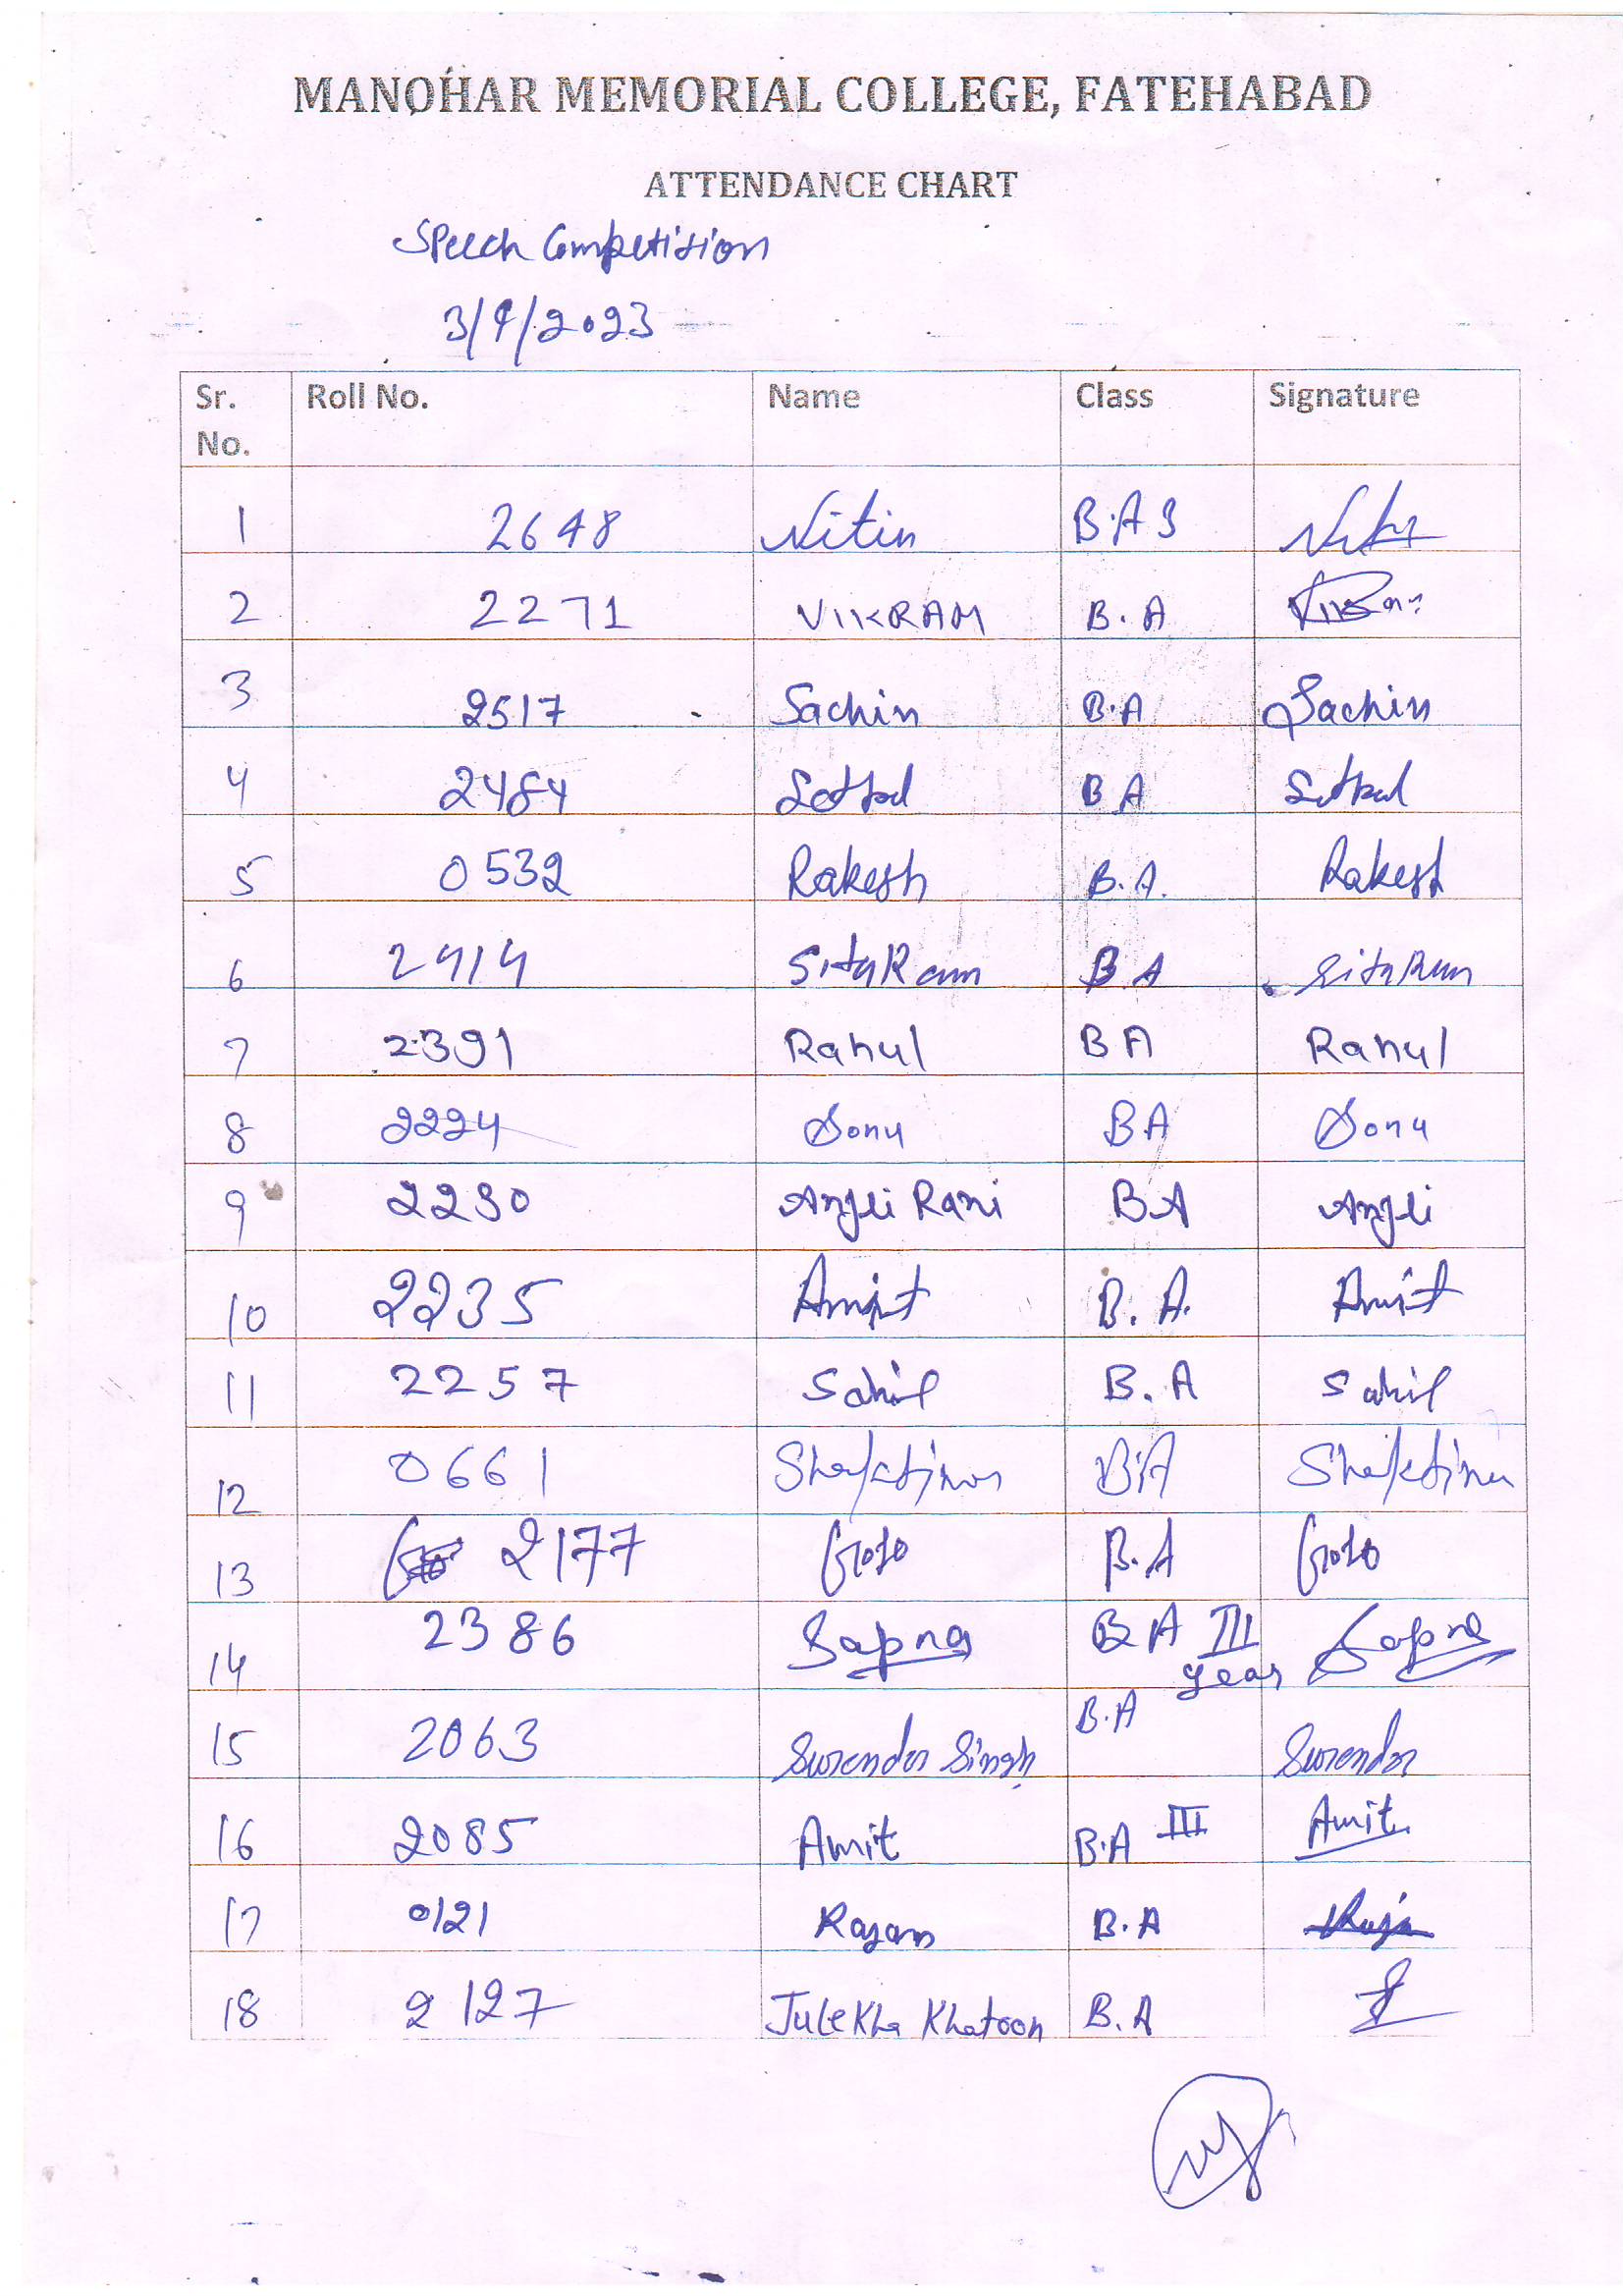 MANOHAR MEMORIAL COLLEGE, FATEHABAD
ATTENDANCE CHART
Speech Competition
3/9/2023
Sr. No. Roll No. Name Class Signature
1 2648 Nitin B.A 3
2 2271 VIKRAM B.A
3 2517 Sachin B.A Sachin
4 2484 B A
5 0532 Rakesh B.A. Rakesh
6 2414 SitaRam B A SitaRam
7 2391 Rahul BA Rahul
8 2224 Sonu BA Sonu
9 2230 Anjli Rani BA Anjli
10 2235 Amit B.A. Amit
11 2257 Sahil B.A Sahil
12 0661 B.A
13 2177 B.A
14 2386 Sapna BA III year Sapna
15 2063 Surender Singh B.A Surender
16 2085 Amit B.A III Amit
17 0121 Rajan B.A
18 2127 Julekha Khatoon B.A